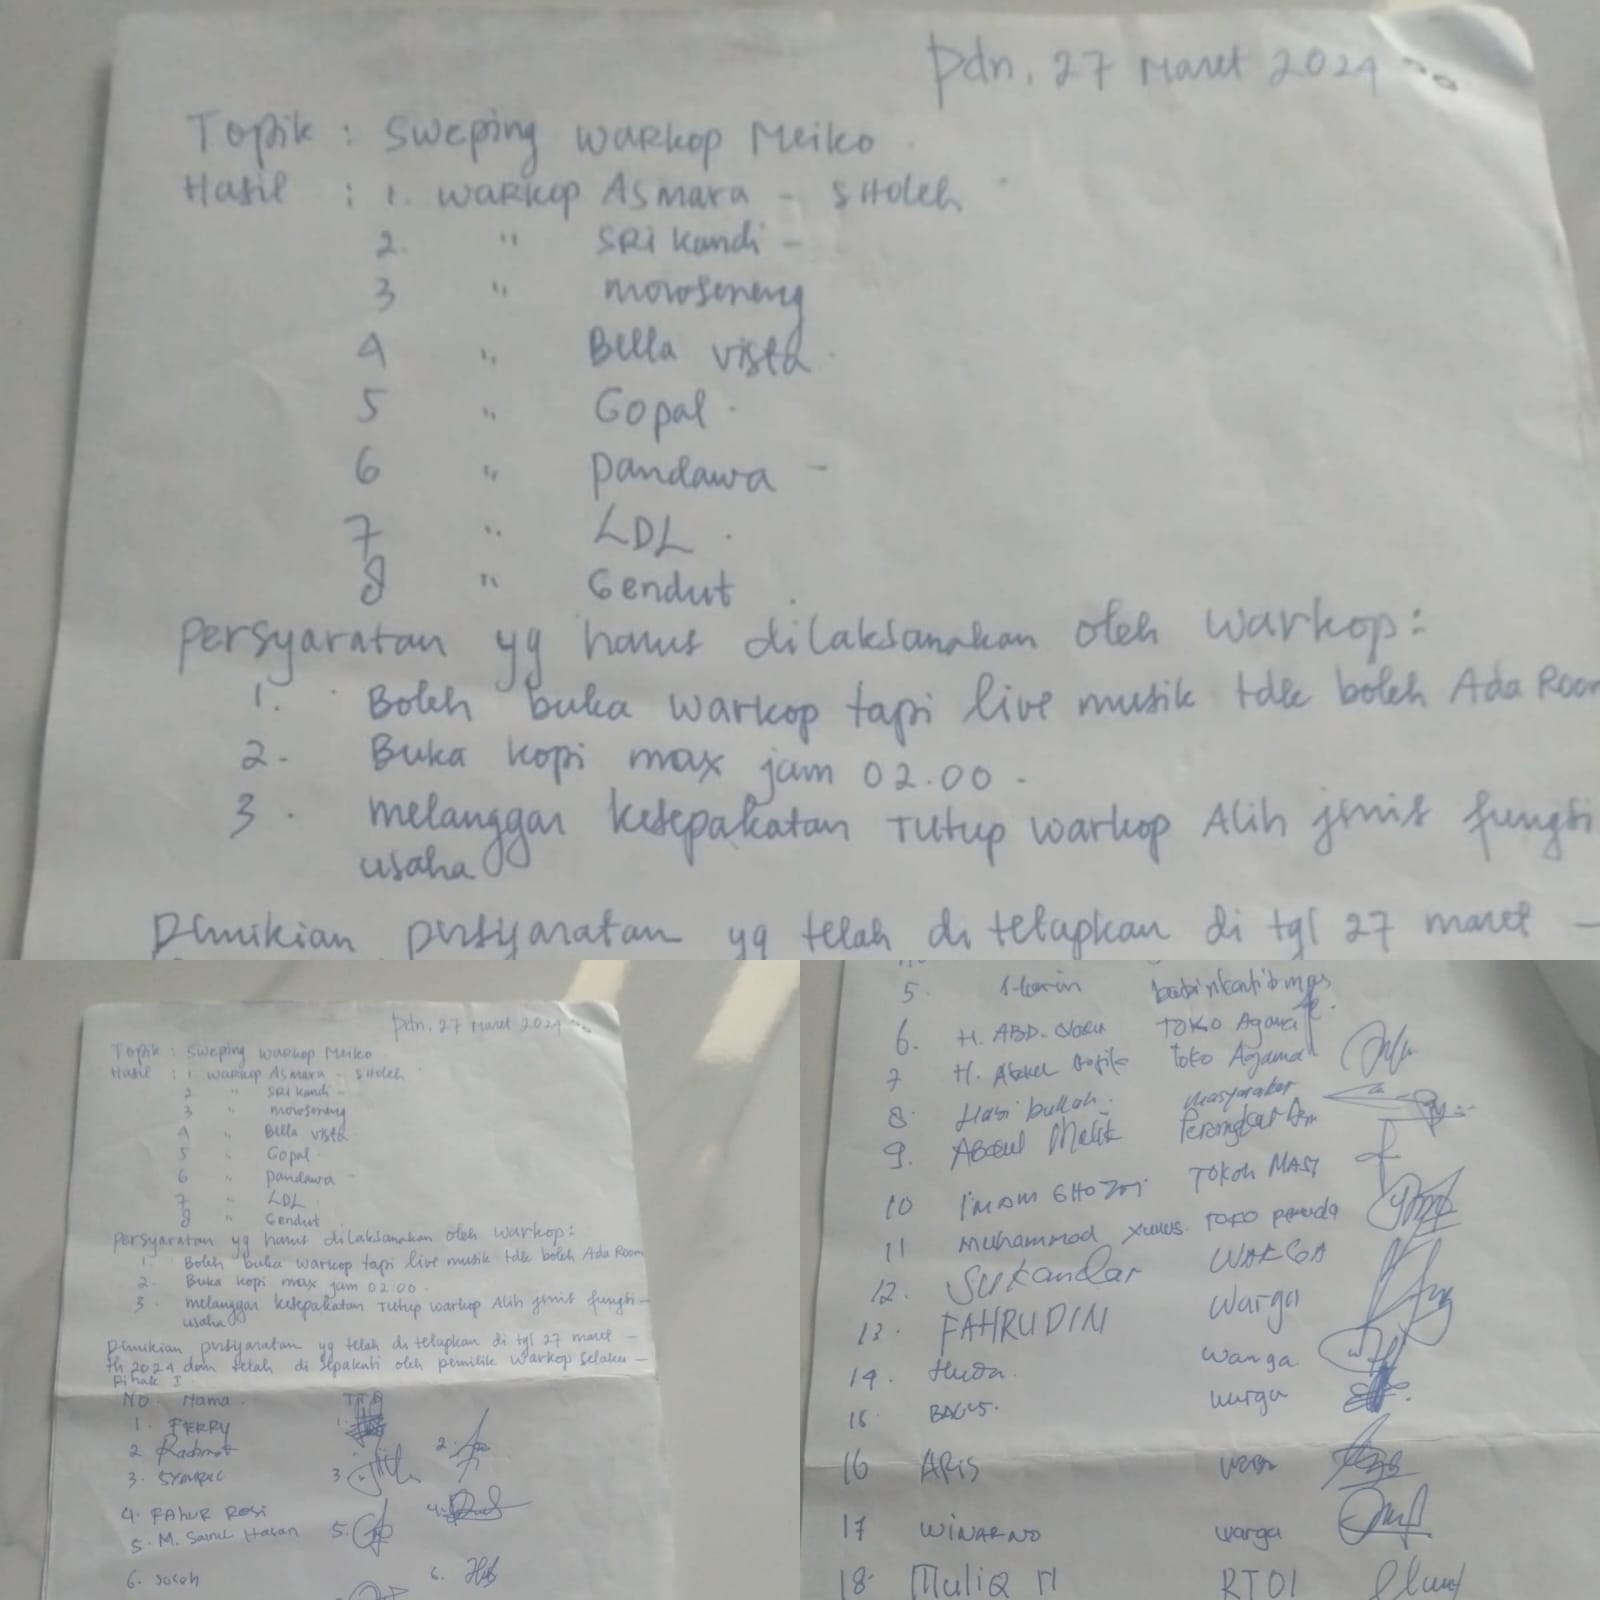 Pdn, 27 Maret 2024
Topik : Sweping Warkop Meiko
Hasil : 1. Warkop Asmara - SHoleh
2. " SRi kandi -
3 " moroseneng
4 " Bella vista
5 " Gopal
6 " pandawa -
7 " LDL
8 " Gendut
persyaratan yg harus dilaksanakan oleh warkop:
1. Boleh buka warkop tapi live musik tdk boleh Ada Room
2. Buka kopi max jam 02.00
3. melanggar kesepakatan Tutup warkop Alih jenis fungsi
usaha
Demikian persyaratan yg telah di tetapkan di tgl 27 maret -
Pdn, 27 Maret 2024
Topik : Sweping Warkop Meiko
Hasil : 1 warkop Asmara - SHoleh
2 " SRi kandi -
3 " moroseneng
4 " Bella vista
5 " Gopal
6 " pandawa -
7 " LDL
8 " Gendut
persyaratan yg harus dilaksanakan oleh warkop:
1. Boleh buka warkop tapi live musik tdk boleh Ada Room
2. Buka kopi max jam 02.00
3. melanggar kesepakatan Tutup warkop Alih jenis fungsi -
usaha
Demikian persyaratan yg telah di tetapkan di tgl 27 maret -
th 2024 dan telah di sepakati oleh pemilik warkop selaku -
Pihak I
NO Nama TTD
1. FERRY 1.
2 Rachmat 2.
3. 3
4. FAHUR ROSI 4.
5. M. Sainul Hasan 5.
6. soleh 6.
5. babinkantibmas
6. H. ABD. TOKO Agama
7 H. toko Agama
8. Hasibullah. masyarakat
9. Abdul Malik Perangkat
10 imam GHOZALI TOKOH MASY
11 Muhammad Yunus. TOKO pemuda
12. Sukandar WARGA
13. FAHRUDIN Warga
14. Huda. warga
15 BAGUS. warga
16 ARIS
17 WINARNO warga
18. Muliq RT01